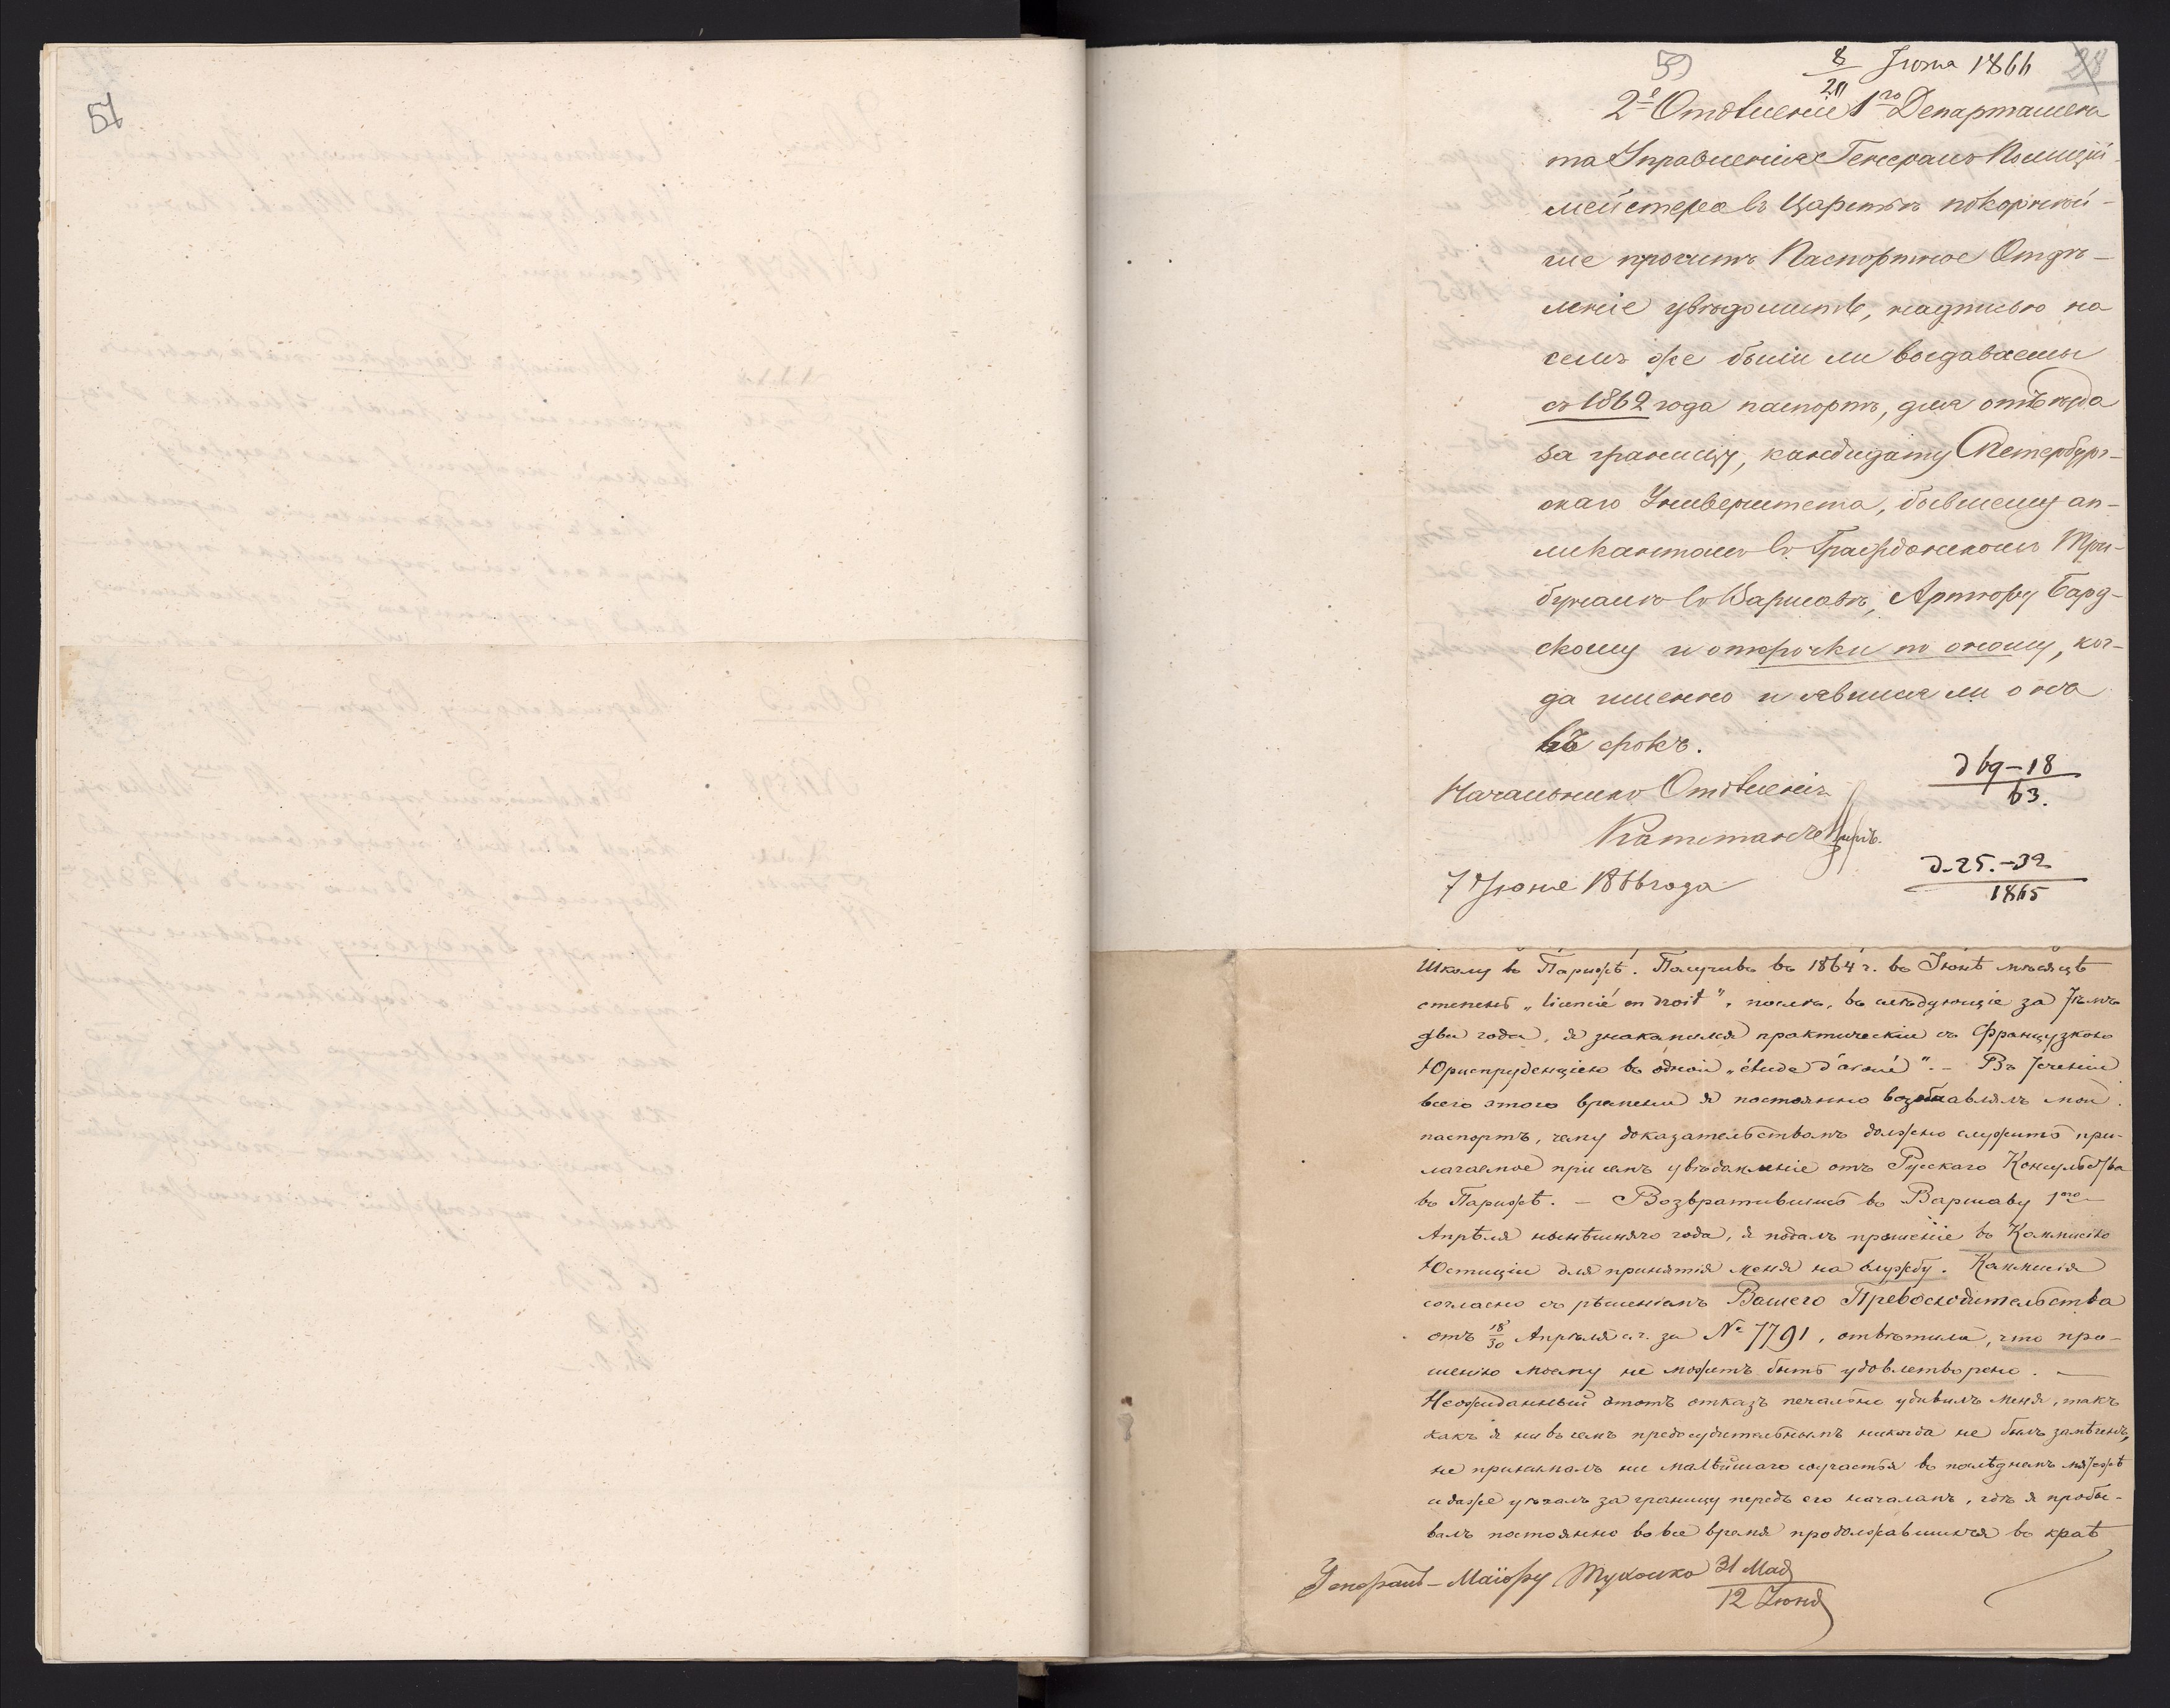 57
59
8/20 Іюня 1866
28
2е Отдѣленіе 1го Департамен
та Управленія Генералъ Полицій-
мейстера въ Царствѣ покорнѣй-
ше проситъ Паспортное Отдѣ-
леніе увѣдомить, надписью на
семъ же были ли выдаваемы
съ 1862 года паспортъ, для отъѣзда
за границу, кандидату СПетербург-
скаго Университета, бывшему ап-
ликантомъ въ Гражданскомъ Три-
буналѣ въ Варшавѣ, Артуру Бард-
скому и отсрочки по оному, ког-
да именно и явился ли онъ
въ срокъ.
Начальникъ Отдѣленія
Капитанъ
7 Іюня 1866 года
д 69-18
63.
д-25.-32
1865
Школу въ Парижѣ. Получивъ въ 1864 г. въ Іюнѣ мѣсяцѣ
степень „licencié en droit", послѣ, въ слѣдующіе за тѣмъ
два года, я знакомился практически съ Французкою
Юриспруденціею въ одной „étude d'avoué". – Въ теченіи
всего этого времени я постоянно возобнавлялъ мой
паспортъ, чему доказательствомъ должно служить при-
лагаемое при семъ увѣдомленіе отъ Русскаго Консульства
въ Парижѣ. – Возвратившись въ Варшаву 1го
Апрѣля нынѣшняго года, я подалъ прошеніе въ Коммисію
Юстиціи для принятія меня на службу. Коммисія
согласно съ рѣшеніемъ Вашего Превосходительства
отъ 18/30 Апрѣля с.г. за № 7791, отвѣтила, что про-
шенію моему не можетъ быть удовлетворено. —
Неожиданный этотъ отказъ печально удивилъ меня, такъ
какъ я ни въ чемъ предосудительномъ никогда не былъ замѣченъ,
не принималъ ни малѣйшаго соучастья въ послѣднемъ мятежѣ
и даже уѣхалъ за границу передъ его началомъ, гдѣ я пробы-
валъ постоянно во все время продолжавшихся въ краѣ
Генералъ-Маіору Тухолко 31 Мая
12 Іюня